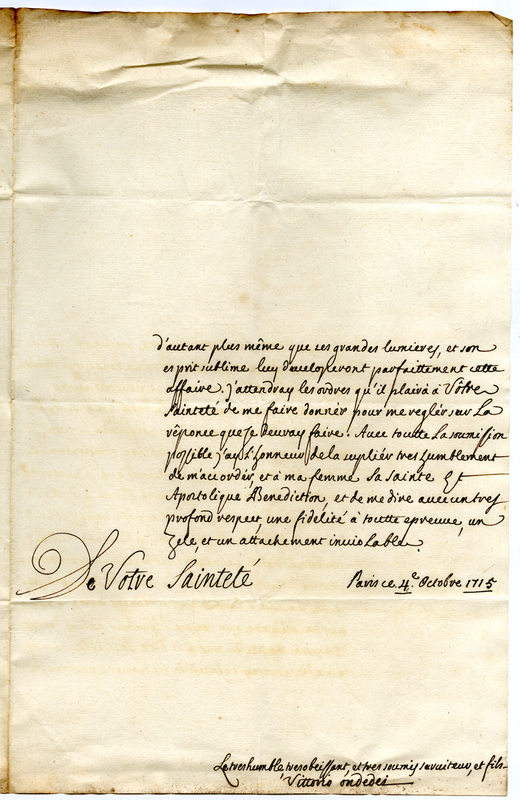 d'autant plus même que ses grandes lumieres, et son
esprit sublime luy developeront parfaittement cette
affaire. j'attendray les ordres qu'il plaira à Votre
Sainteté de me faire donner pour me regler sur La
réponce que je devray faire. Avec toutte La soumission
possible j'ay L'honneur de la supliér tres humblement
de m'accorder, et à ma femme Sa Sainte Et
Apostolique Benediction, et de me dire avec un tres
profond respect, une fidelité à toutte epreuve, un
Zele, et un attachement inviolable.
De Votre Sainteté Paris ce 4.e Octobre 1715
Le tres humble, tres obeissant, et tres soumis serviteur, et fils
Vittorio ondedei